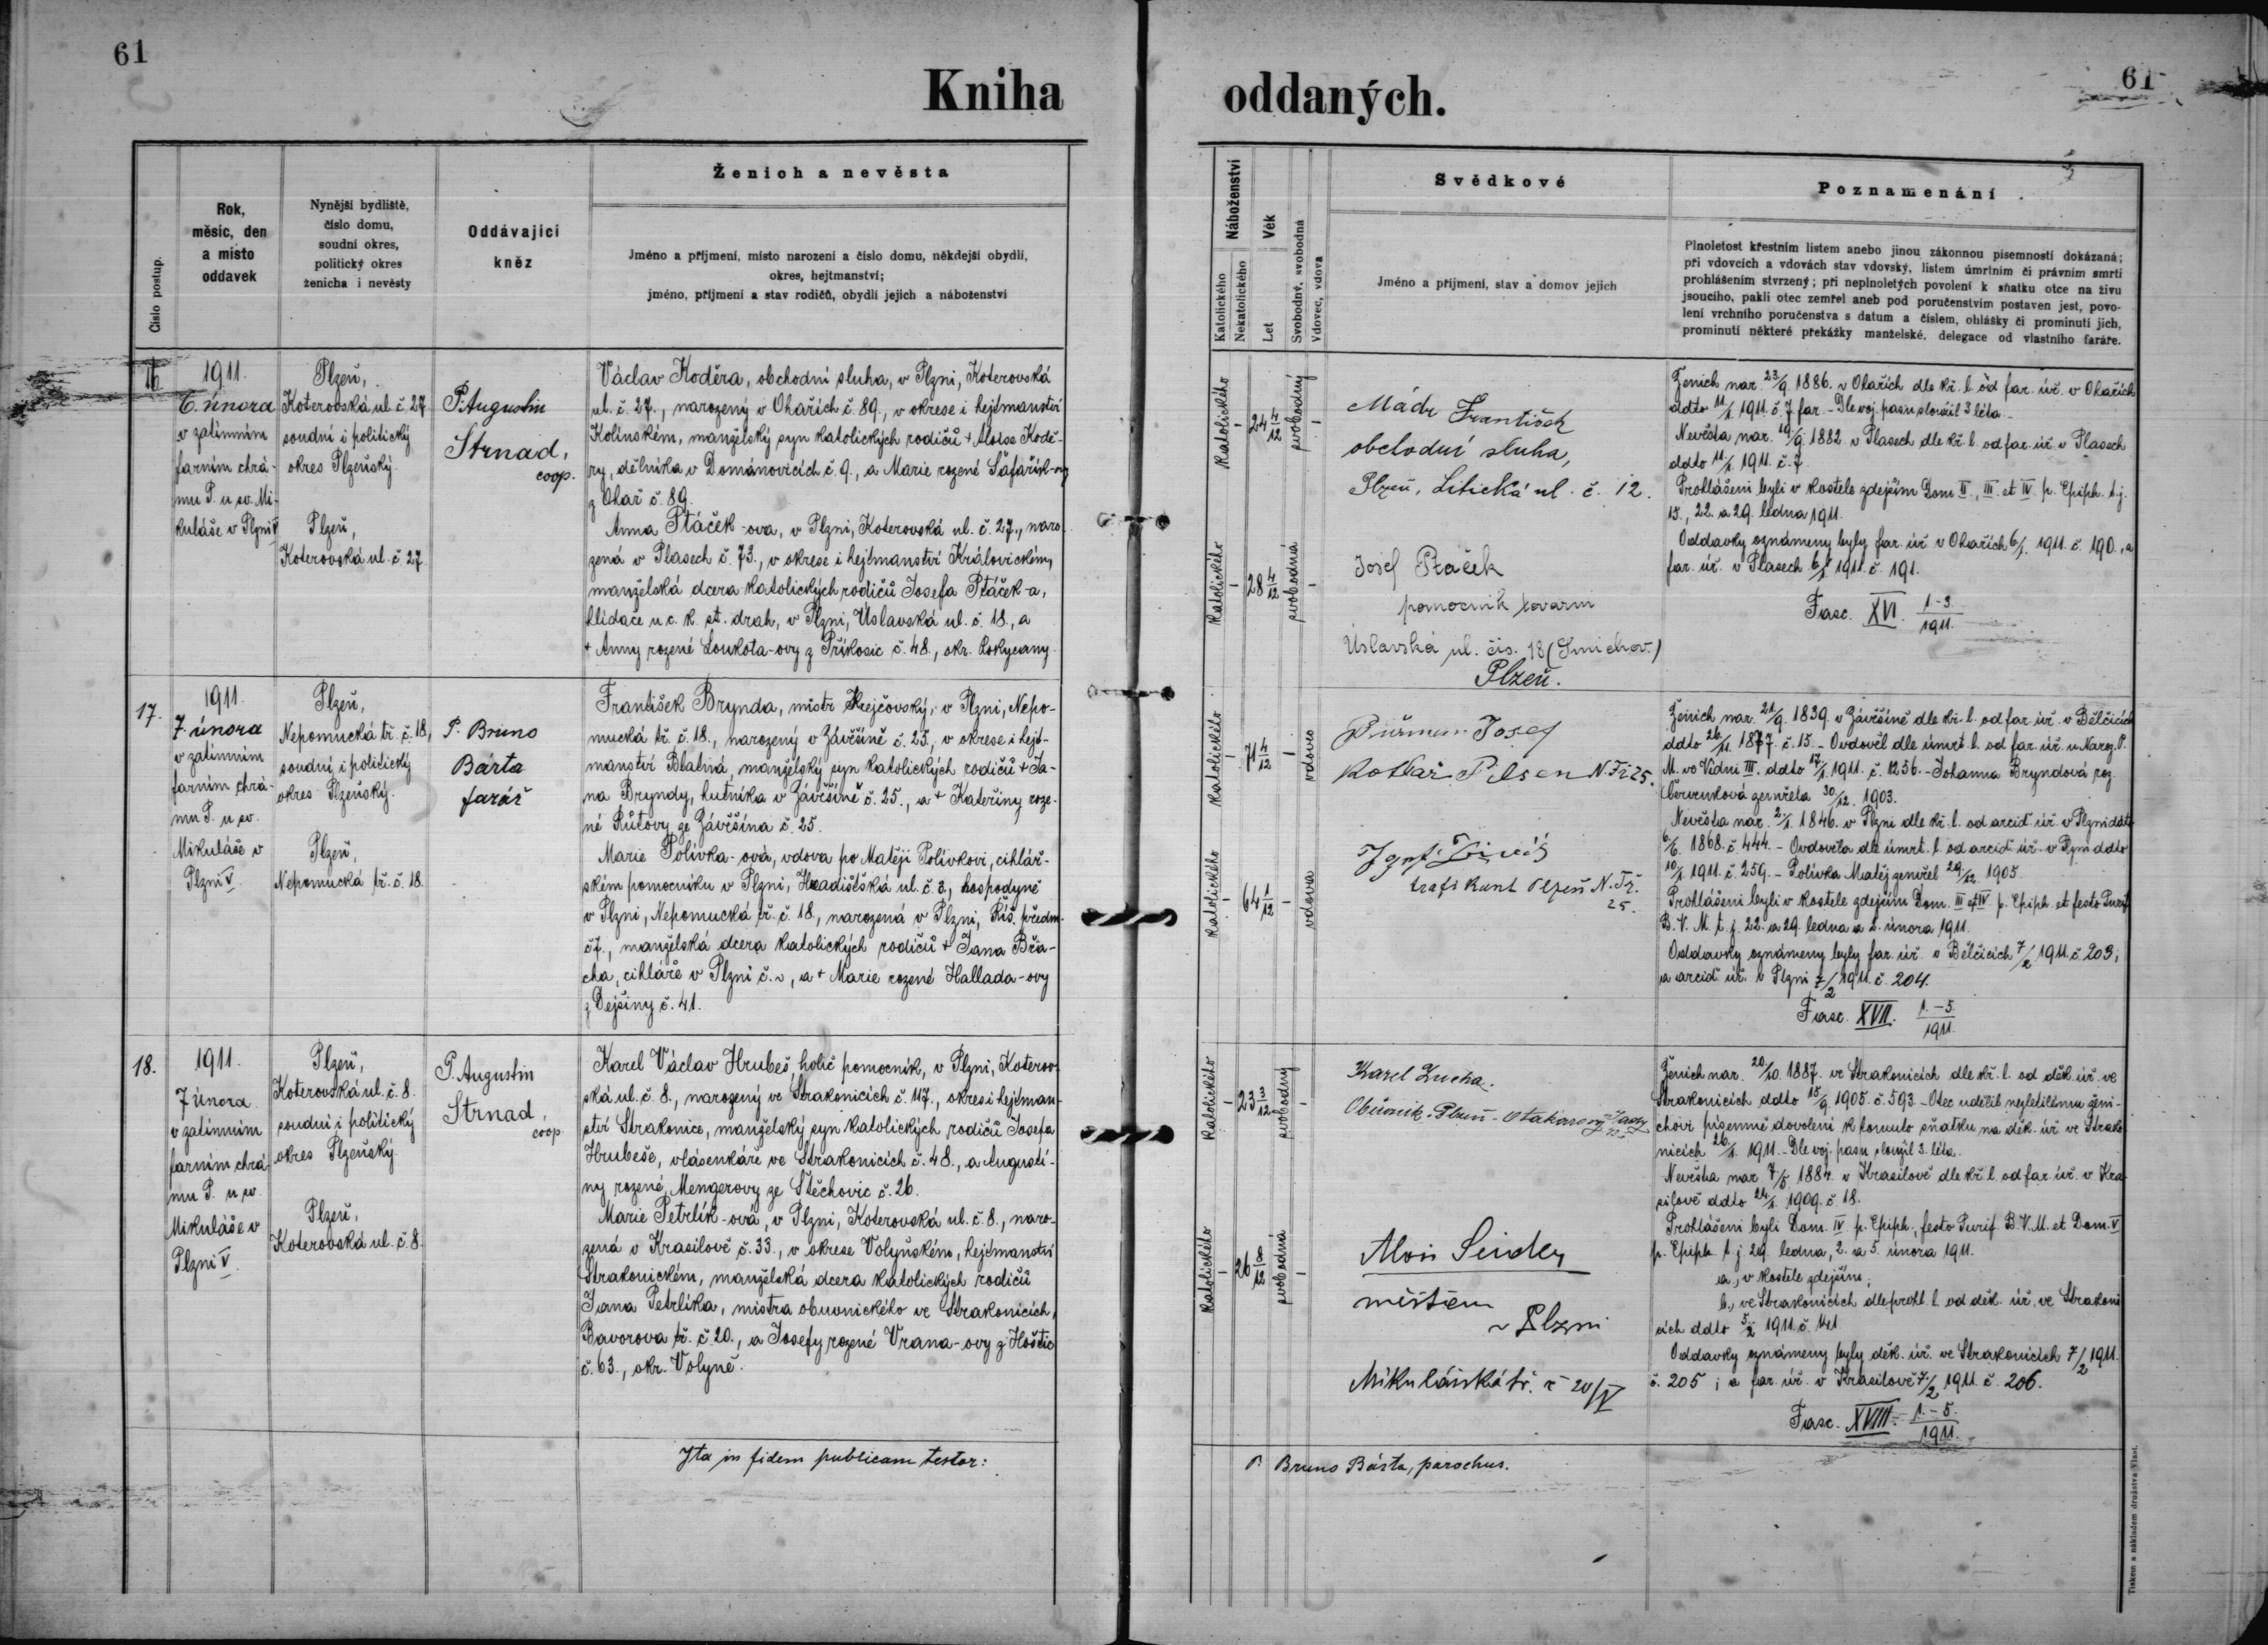 61
Kniha
Číslo postup.
Rok,
měsíc, den
a místo
oddavek
Nynější bydliště,
číslo domu,
soudní okres,
politický okres
ženicha i nevěsty
Oddávající
kněz
Ženich a nevěsta
Jméno a příjmení, místo narození a číslo domu, někdejší obydlí,
okres, hejtmanství;
jméno, příjmení a stav rodičů, obydlí jejich a náboženství
16
1911.
6. února
v zatímním
farním chrá-
mu P. u sv. Mi-
kuláše v Plzni V
Plzeň,
Koterovská ul. č. 27
soudní i politický
okres Plzeňský.
Plzeň,
Koterovská ul. č. 27
P. Augustin
Strnad,
coop.
Václav Koděra, obchodní sluha, v Plzni, Koterovská
ul. č. 27., narozený v Ohařích č. 89., v okrese i hejtmanství
Kolínském, manželský syn katolických rodičů + Aloise Kodě-
ry, dělníka v Dománovicích č. 9., a Marie rozené Šafařík-ovy
z Ohař č. 89.
Anna Ptáček-ova, v Plzni, Koterovská ul. č. 27., naro-
zená v Plasech č. 73., v okrese i hejtmanství Královickém,
manželská dcera katolických rodičů Josefa Ptáček-a,
hlídače u c. k. st. drah, v Plzni, Úslavská ul. č. 18., a
+ Anny rozené Loukota-ovy z Příkosic č. 48., okr. Rokycany.
17.
1911.
7. února
v zatímním
farním chrá-
mu P. u sv.
Mikuláše v
Plzni V.
Plzeň,
Nepomucká tř. č. 18,
soudní i politický
okres Plzeňský.
Plzeň,
Nepomucká tř. č. 18.
P. Bruno
Bárta
farář
František Brynda, mistr krejčovský, v Plzni, Nepo-
mucká tř. č. 18., narozený v Závěšíně č. 25., v okrese i hejt-
manství Blatná, manželský syn katolických rodičů + Ja-
na Bryndy, hutníka v Závěšíně č. 25., a + Kateřiny roze-
né Růtovy ze Závěšína č. 25.
Marie Polívka-ová, vdova po Matěji Polívkovi, cihlář-
ském pomocníku v Plzni, Hradišťská ul. č. 3, hospodyně
v Plzni, Nepomucká tř. č. 18., narozená v Plzni, Říš. předm.
č 7., manželská dcera katolických rodičů + Jana Břa-
cha, cihláře v Plzni č. ~, a + Marie rozené Hallada-ovy
z Dejšiny č. 41.
18.
1911.
7 února
v zatímním
farním chrá-
mu P. u sv.
Mikuláše v
Plzni V.
Plzeň,
Koterovská ul. č. 8.
soudní i politický
okres Plzeňský
Plzeň,
Koterovská ul. č. 8.
P. Augustin
Strnad,
coop
Karel Václav Hrubeš, holič pomocník, v Plzni, Koterov-
ská ul. č. 8., narozený ve Strakonicích č. 117., okres i hejtman-
ství Strakonice, manželský syn katolických rodičů Josefa
Hrubeše, vlásenkáře ve Strakonicích č. 48., a Augusti-
ny rozené Mengerovy ze Štěchovic č. 26.
Marie Petrlík-ová, v Plzni, Koterovská ul. č. 8., naro-
zená v Krasilově č. 33., v okrese Volyňském, hejtmanství
Strakonickém, manželská dcera katolických rodičů
Jana Petrlíka, mistra obuvnického ve Strakonicích,
Bavorova tř. č 20., a Josefy rozené Vrana-ovy z Hoštic
č. 63., okr. Volyně.
Ita in fidem publicam testor:
61
oddaných.
Náboženství
Katolického
Nekatolického
Věk
Let
Svobodný, svobodná
Vdovec, vdova
Svědkové
Jméno a příjmení, stav a domov jejich
Poznamenání
Plnoletost křestním listem anebo jinou zákonnou písemností dokázaná;
při vdovcích a vdovách stav vdovský, listem úmrtním či právním smrti
prohlášením stvrzený; při neplnoletých povolení k sňatku otce na živu
jsoucího, pakli otec zemřel aneb pod poručenstvím postaven jest, povo-
lení vrchního poručenstva s datum a číslem, ohlášky či prominutí jich,
prominutí některé překážky manželské, delegace od vlastního faráře.
Katolického
–
24 4/12
svobodný
–
Katolického
–
28 4/12
svobodná
–
Mádr František
obchodní sluha,
Plzeň, Litická ul. č. 12.
Josef Ptáček
pomocník tovarní
Úslavská ul. čis. 18 (Smichov.)
Plzeň.
Ženich nar. 23/9. 1886. v Ohařích dle kř. l. od far. úř. v Ohařích
ddto 11/1. 1911. č. 7 far. – Dle voj. pasu sloužil 3 léta.
Nevěsta nar. 19/9. 1882 v Plasech dle kř. l. od far. úř. v Plasech
ddto 11/1. 1911. č. 7
Prohlášeni byli v kostele zdejším Dom II., III. et IV. p. Epiph. t. j.
15., 22. a 29. ledna 1911.
Oddavky oznámeny byly far. úř. v Ohařích 6/2. 1911. č. 190., a
far. úř. v Plasech 6/2 1911. č. 191.
Fasc. XVI. 1-3./1911.
Katolického
–
71 4/12
–
vdovec
Katolického
–
64 1/12
–
vdova
Josef
Kotlař Pilsen N. Tř 25.
trafikant Plzeň N. Tř.
25.
Ženich nar. 21/9. 1839. v Závěšíně dle kř. l. od far. úř. v Bělčicích
ddto 26/11. 1877. č. 15. – Ovdověl dle úmrt. l. od far. úř. u Naroz. P.
M. ve Vídni III. ddto 17/1. 1911. č. 1236. – Johanna Bryndová roz.
Červenková zemřela 30/12. 1903.
Nevěsta nar. 2/1. 1846. v Plzni dle kř. l. od arciď. úř. v Plzni ddto
6/6. 1868. č 444. – Ovdověla dle úmrt. l. od arciď. úř. v Plzni ddto
10/1. 1911. č. 259. – Polívka Matěj zemřel 29/12. 1905.
Prohlášeni byli v kostele zdejším Dom. III et IV. p. Epiph. et festo Purif.
B. V. M. t. j. 22. a 29. ledna a 2. února 1911.
Oddavky oznámeny byly far. úř. v Bělčicích 7/2 1911. č. 203,
a arciď. úř. v Plzni 7/2 1911. č. 204.
Fasc. XVII. 1.–5./1911.
Katolického
–
23 3/12
svobodný
–
Katolického
–
26 8/12
svobodná
–
Karel Zucha.
Obuvník. Plzeň
Alois
měšťan
v Plzni
Mikulášská tř. č 20/IV
Ženich nar. 20/10. 1887. ve Strakonicích dle kř. l. od děk. úř. ve
Strakonicích ddto 15/9. 1905. č. 593. – Otec udělil nezletilému ženi-
chovi písemně dovolení k tomuto sňatku na děk. úř. ve Strako-
nicích 26/1. 1911. – Dle voj. pasu sloužil 3. léta.
Nevěsta nar. 7/5 1884. v Krasilově dle kř. l. od far. úř. v Kra-
silově ddto 24/1. 1909. č. 18.
Prohlášeni byli Dom. IV p. Epiph., festo Purif. B. V. M. et Dom. V
p. Epiph. t. j. 29. ledna, 2. a 5. února 1911.
a, v kostele zdejším,
b., ve Strakonicích dle prohl. l. od děk. úř. ve Strakoni-
cích ddto 5/2 1911. č. 141
Oddavky oznámeny byly děk. úř. ve Strakonicích 7/2 1911.
č. 205, a far. úř. v Krasilově 7/2 1911. č. 206.
Fasc. XVIII. 1.–5./1911.
P. Bruno Bárta, parochus.
Tiskem a nákladem družstva Vlast.